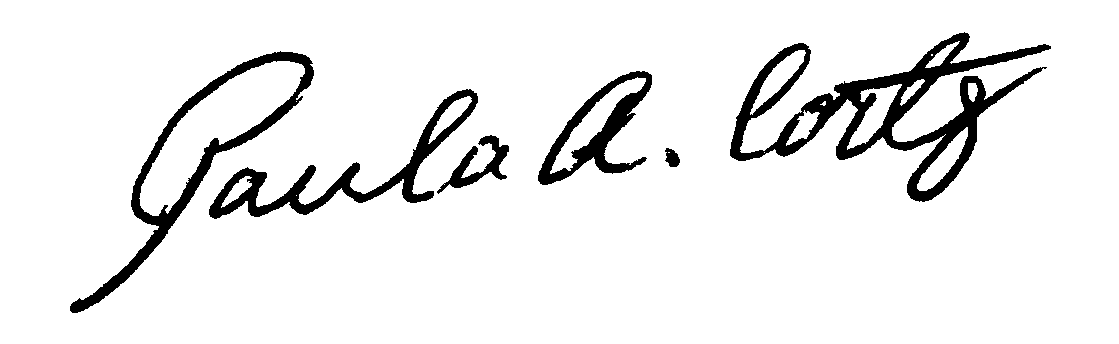 Paula A. Cortz